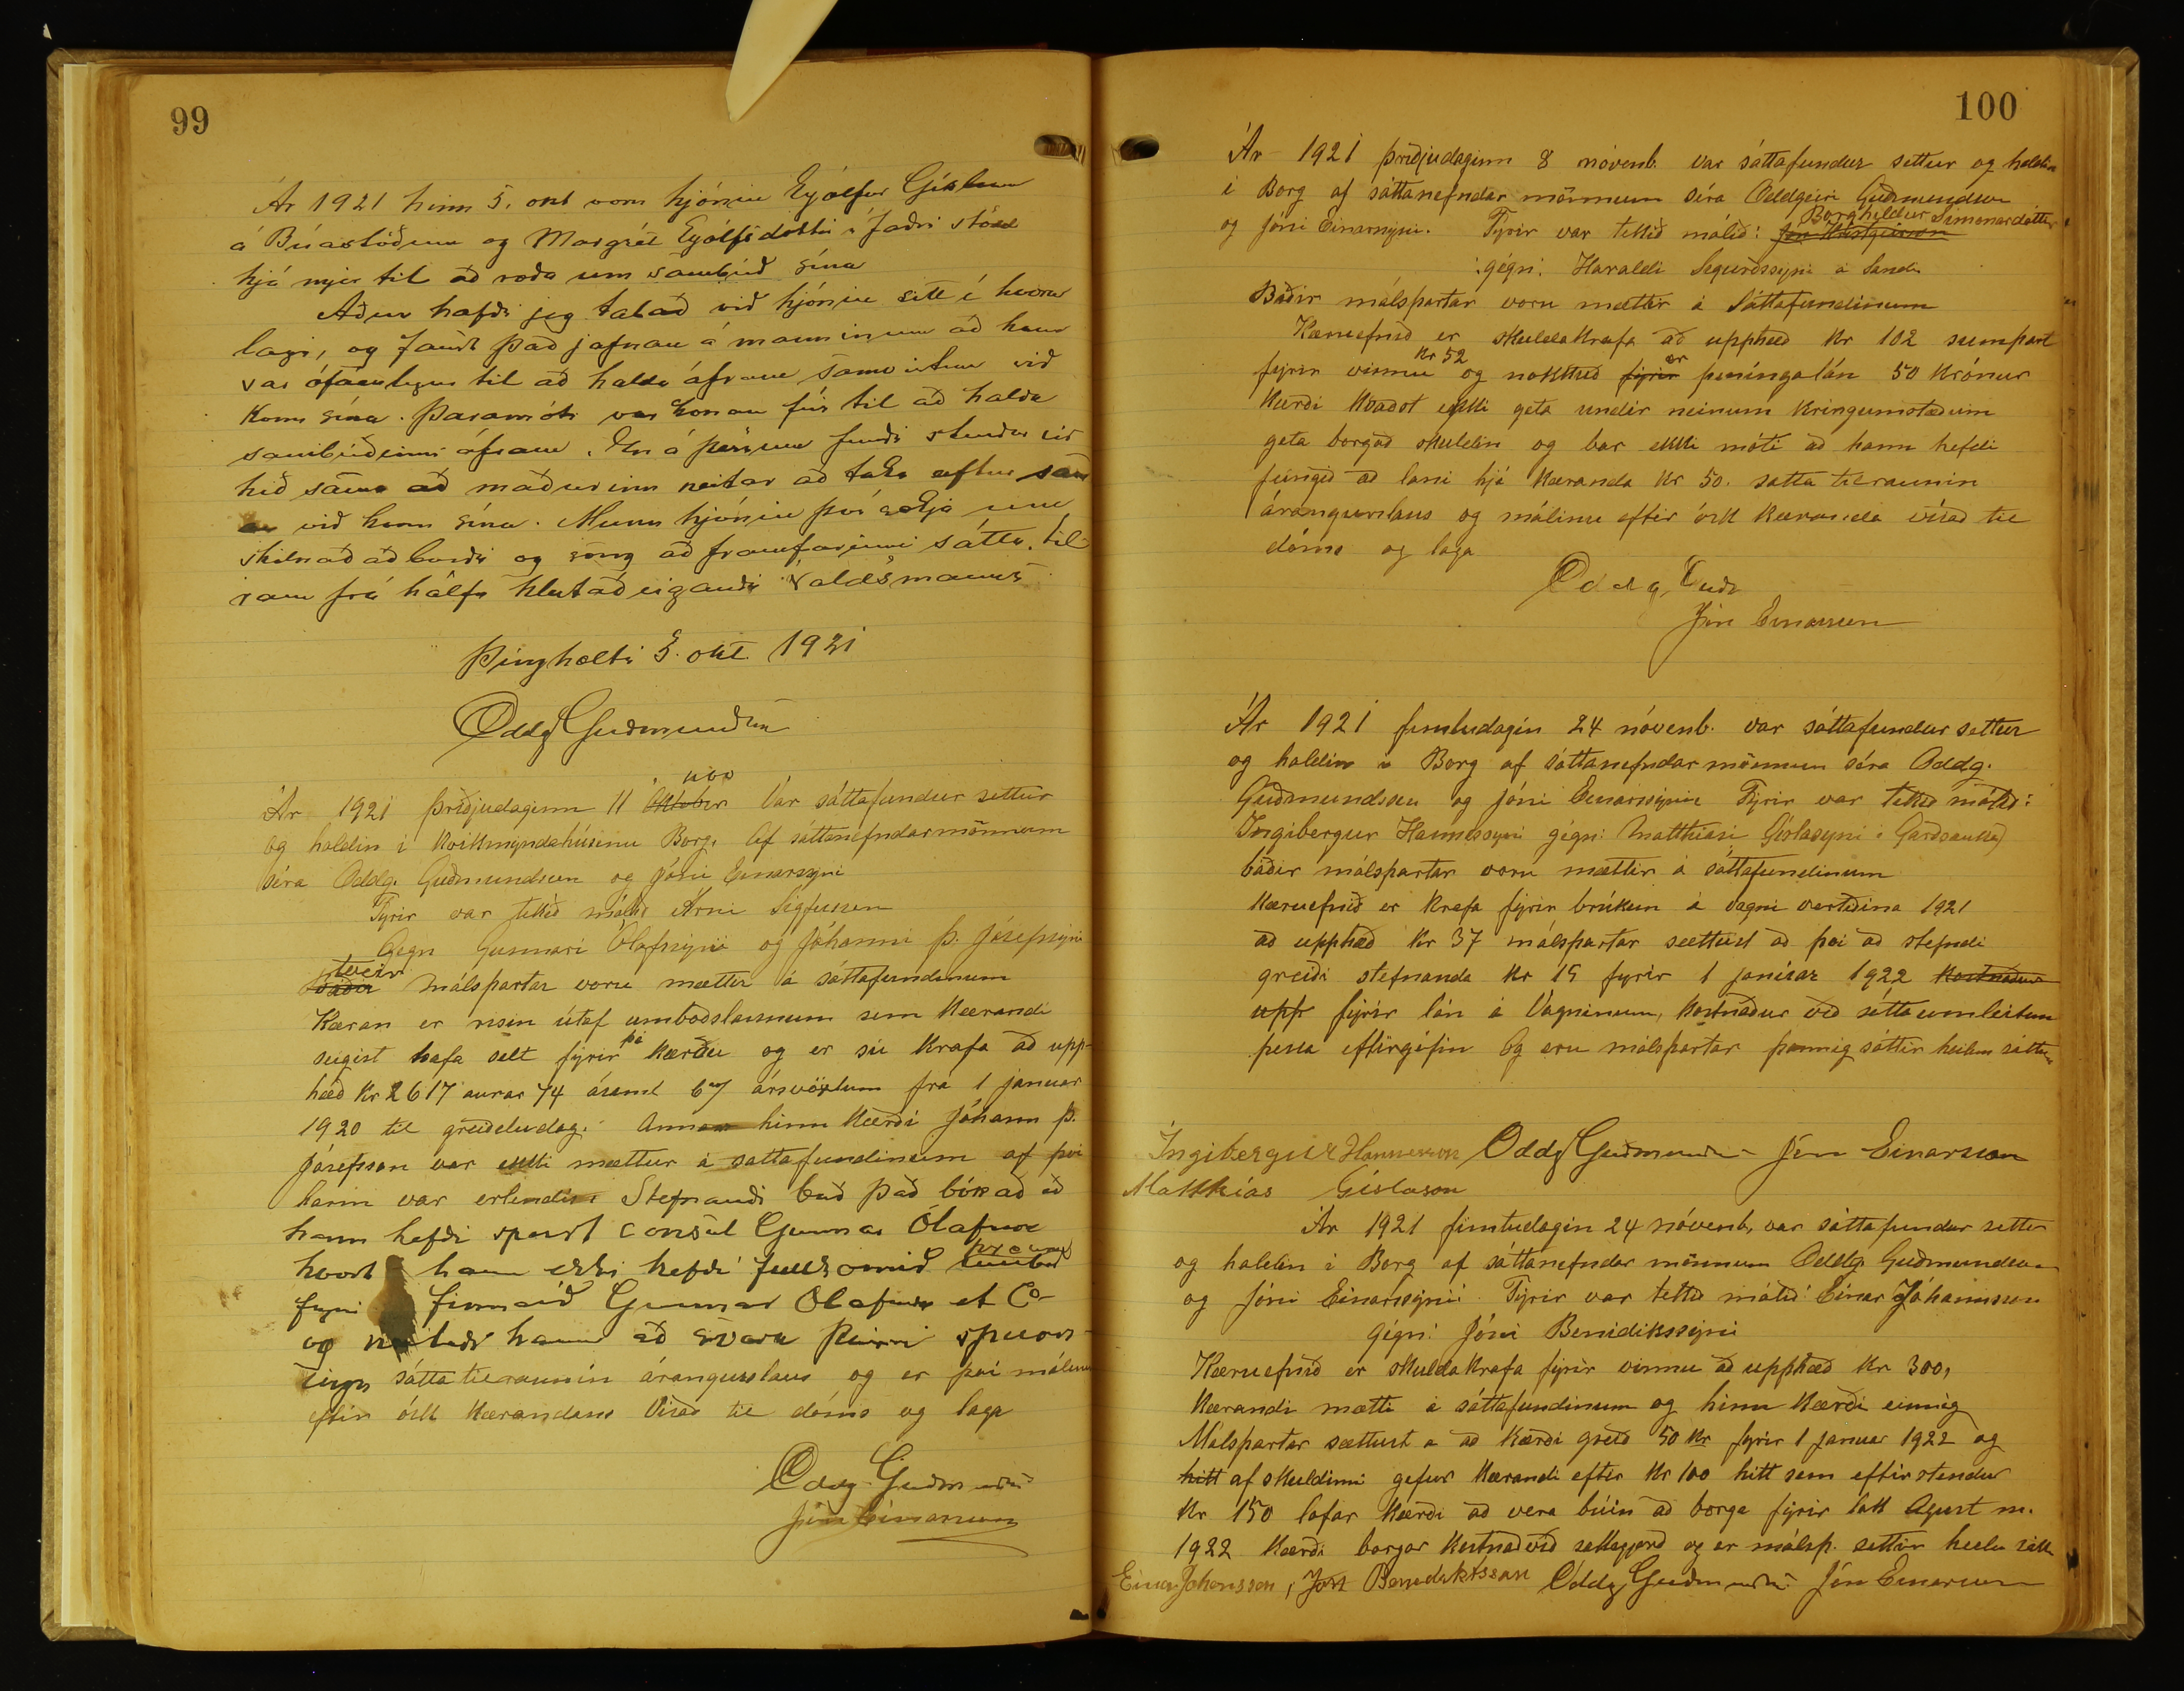 99
Ár 1921 hinn 5. okt voru hjónin Eyólfur Gíslason
á Búastöðum og Margrét Eyólfsdóttir í Jaðri stödd
hjá mjer til að ræða um sambúð sína
Aður hafði jeg talað við hjónin sitt í hvoru
lagi, og fanst það jafnan á manninum að hann
var ófáanlegur til að halda áfram samvistum við
konu sína. Þaramóti var konan fús til að halda
sambúðinni áfram. En á þessum fundi stendur við
hið sama að maðurinn neitar að taka aftur sam
an við konu sína. Munu hjónin því sækja um
skilnað að borði og sæng að framfarinni sátta til
raun frá hálfu hlutaðeigandi valdsmanns
Þingholti 5. okt. 1921
Oddg Guðmundsen
Ár 1921 þriðjudaginn 11 Október nov Var sáttafundur settur
og haldin í kvikmyndahúsinu Borg. Af sáttanefndarmönnum
séra Oddg. Guðmundsen og Jóni Einarssyni
Fyrir var tekið málið Árni Sigfusson
Gegn Gunnari Ólafssyni og Jóhanni Þ. Jósefssyni
báðir tveir málspartar voru mættir á sáttafundinum
Kæran er risin útaf umboðslaunum sem Kærandi
segist hafa selt fyrir þá kærðu og er sú krafa að upp-
hæð kr 2617 aurar 74 ásamt 6% ársvöxtum frá 1 januar
1920 til greiðsludag. Annar hinn kærði Jóhann Þ.
Jósefsson var ekki mættur á sattafundinum af því
hann var erlendis. Stefnandi bað það bókað að
hann hefði spurt consul Gunnar Ólafsson
hvort hann ekki hefði fullkomið umboð
fyrir firmaið Gunnar Olafsson et Co-
og neitaði hann að svara þeirri spurn-
ingu sátta tilraunin árangurslaus og er því málinu
eftir ósk kærandans Vísað til dóms og laga
Oddg Guðmundsen
Jón Einarsson
100
Ár 1921 þriðjudaginn 8 nóvenb. var sáttafundur settur og haldin
í Borg af sáttanefndar mönnum séra Oddgeiri Guðmundsen
og Jóni Einarssyni. Fyrir var tekið málið: Borghildur Símonardóttir
:gégn: Haraldi Sigurðssyni á Sandi
Báðir málspartar voru mættir á Sáttafundinum
Kæruefnið er skuldakrafa að upphæð kr 102 sumpart
fyrir vinnu kr 52 og nokkuð fyrir er peníngalán 50 krónur
Kærði kvaðst ekki geta undir neinum kringumstæðum
geta borgað skuldin og bar ekki móti að hann hefði
fengið að lani hjá kæranda kr 50. satta tilraunin
árangurslaus og málinu eftir ósk kæranda vísað til
dóms og laga
Oddg. Guðm
Jón Einarsson
Ár 1921 fimtudagin 24 nóvenb. var sáttafundur settur
og haldin í Borg af sáttanefndar mönnum séra Oddg.
Guðmundssen og Jóni Einarssyni Fyrir var tekið málið:
Ingibergur Hannessyni gégn: Matthiasi Gíslasyni í Garðsauka
báðir málspartar voru mættir á sáttafundinum
Kæruefnið er krafa fyrir brúkun á vagni vertiðina 1921
að upphæð kr 37 málspartar sættust að því að stefndi
greiði stefnanda kr 15 fyrir 1 janúar 1922 kostnaður
upp fyrir lán á Vagninum, kostnaður við sáttaumleitun
þessa eftirgéfin Og eru málspartar þannig sáttir heilum sáttum
Ingibergur Hannesson Oddg Guðmundsen Jón Einarsson
Matthías Gíslason
Ár 1921 fimtudagin 24 nóvenb, var sáttafundur settur
og haldin í Borg af sáttanefndar mönnum Oddg. Guðmundsen
og Jóni Einarssyni. Fyrir var tekið málið: Einar Jóhannsson
gégn: Jóni Benidikssyni
Kæruefnið er skulda krafa fyrir vinnu að upphæð kr 300,
Kærandi mætti á sáttafundinum og hinn kærði einnig
Málspartar sættust a að kærði greið 50 kr fyrir 1 januar 1922 og
hitt af skuldinni gefur kærandi eftir kr 100 hitt sem eftir stendur
kr 150 lofar kærði að vera búin að borga fyrir lok Agust m.
1922 Kærði borgar kostnað við sattagjorð og er málsp. sattir heilu sátt
Einar Johansson, Jón Benediktsson Oddg Guðmundsen Jón Einarsson